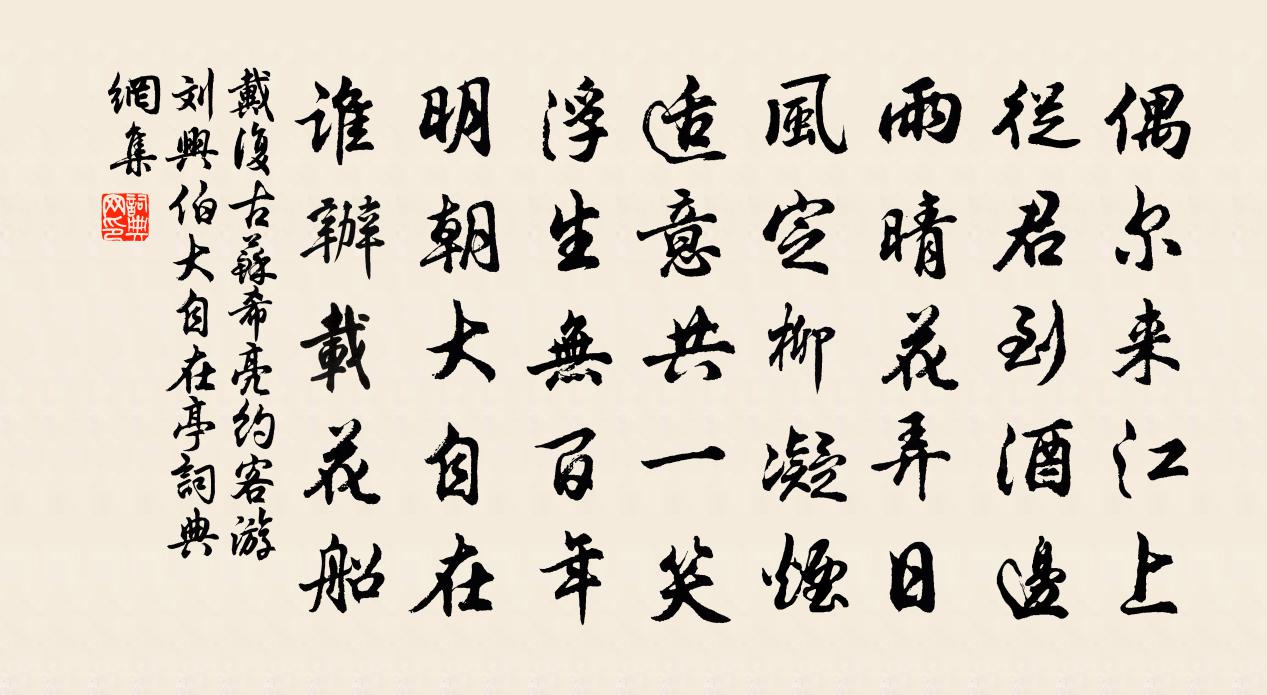 偶尔来江上
從君到酒邊
雨晴花弄日
風定柳凝煙
适意共一笑
浮生無百年
明朝大自在
誰辦載花船
戴復古蘇希亮約客游
刘興伯大自在亭詞典
網集
詞典网印